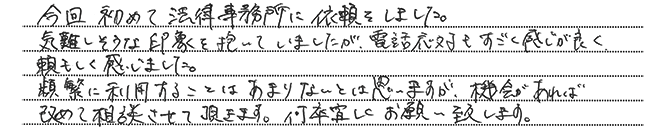 今回初めて法律事務所に依頼をしました。
気難しそうな印象を抱いていましたが、電話応対もすごく感じが良く、
頼もしく感じました。
頻繁に利用することはあまりないとは思いますが、機会があれば
改めて相談させて頂きます。何卒宜しくお願い致します。